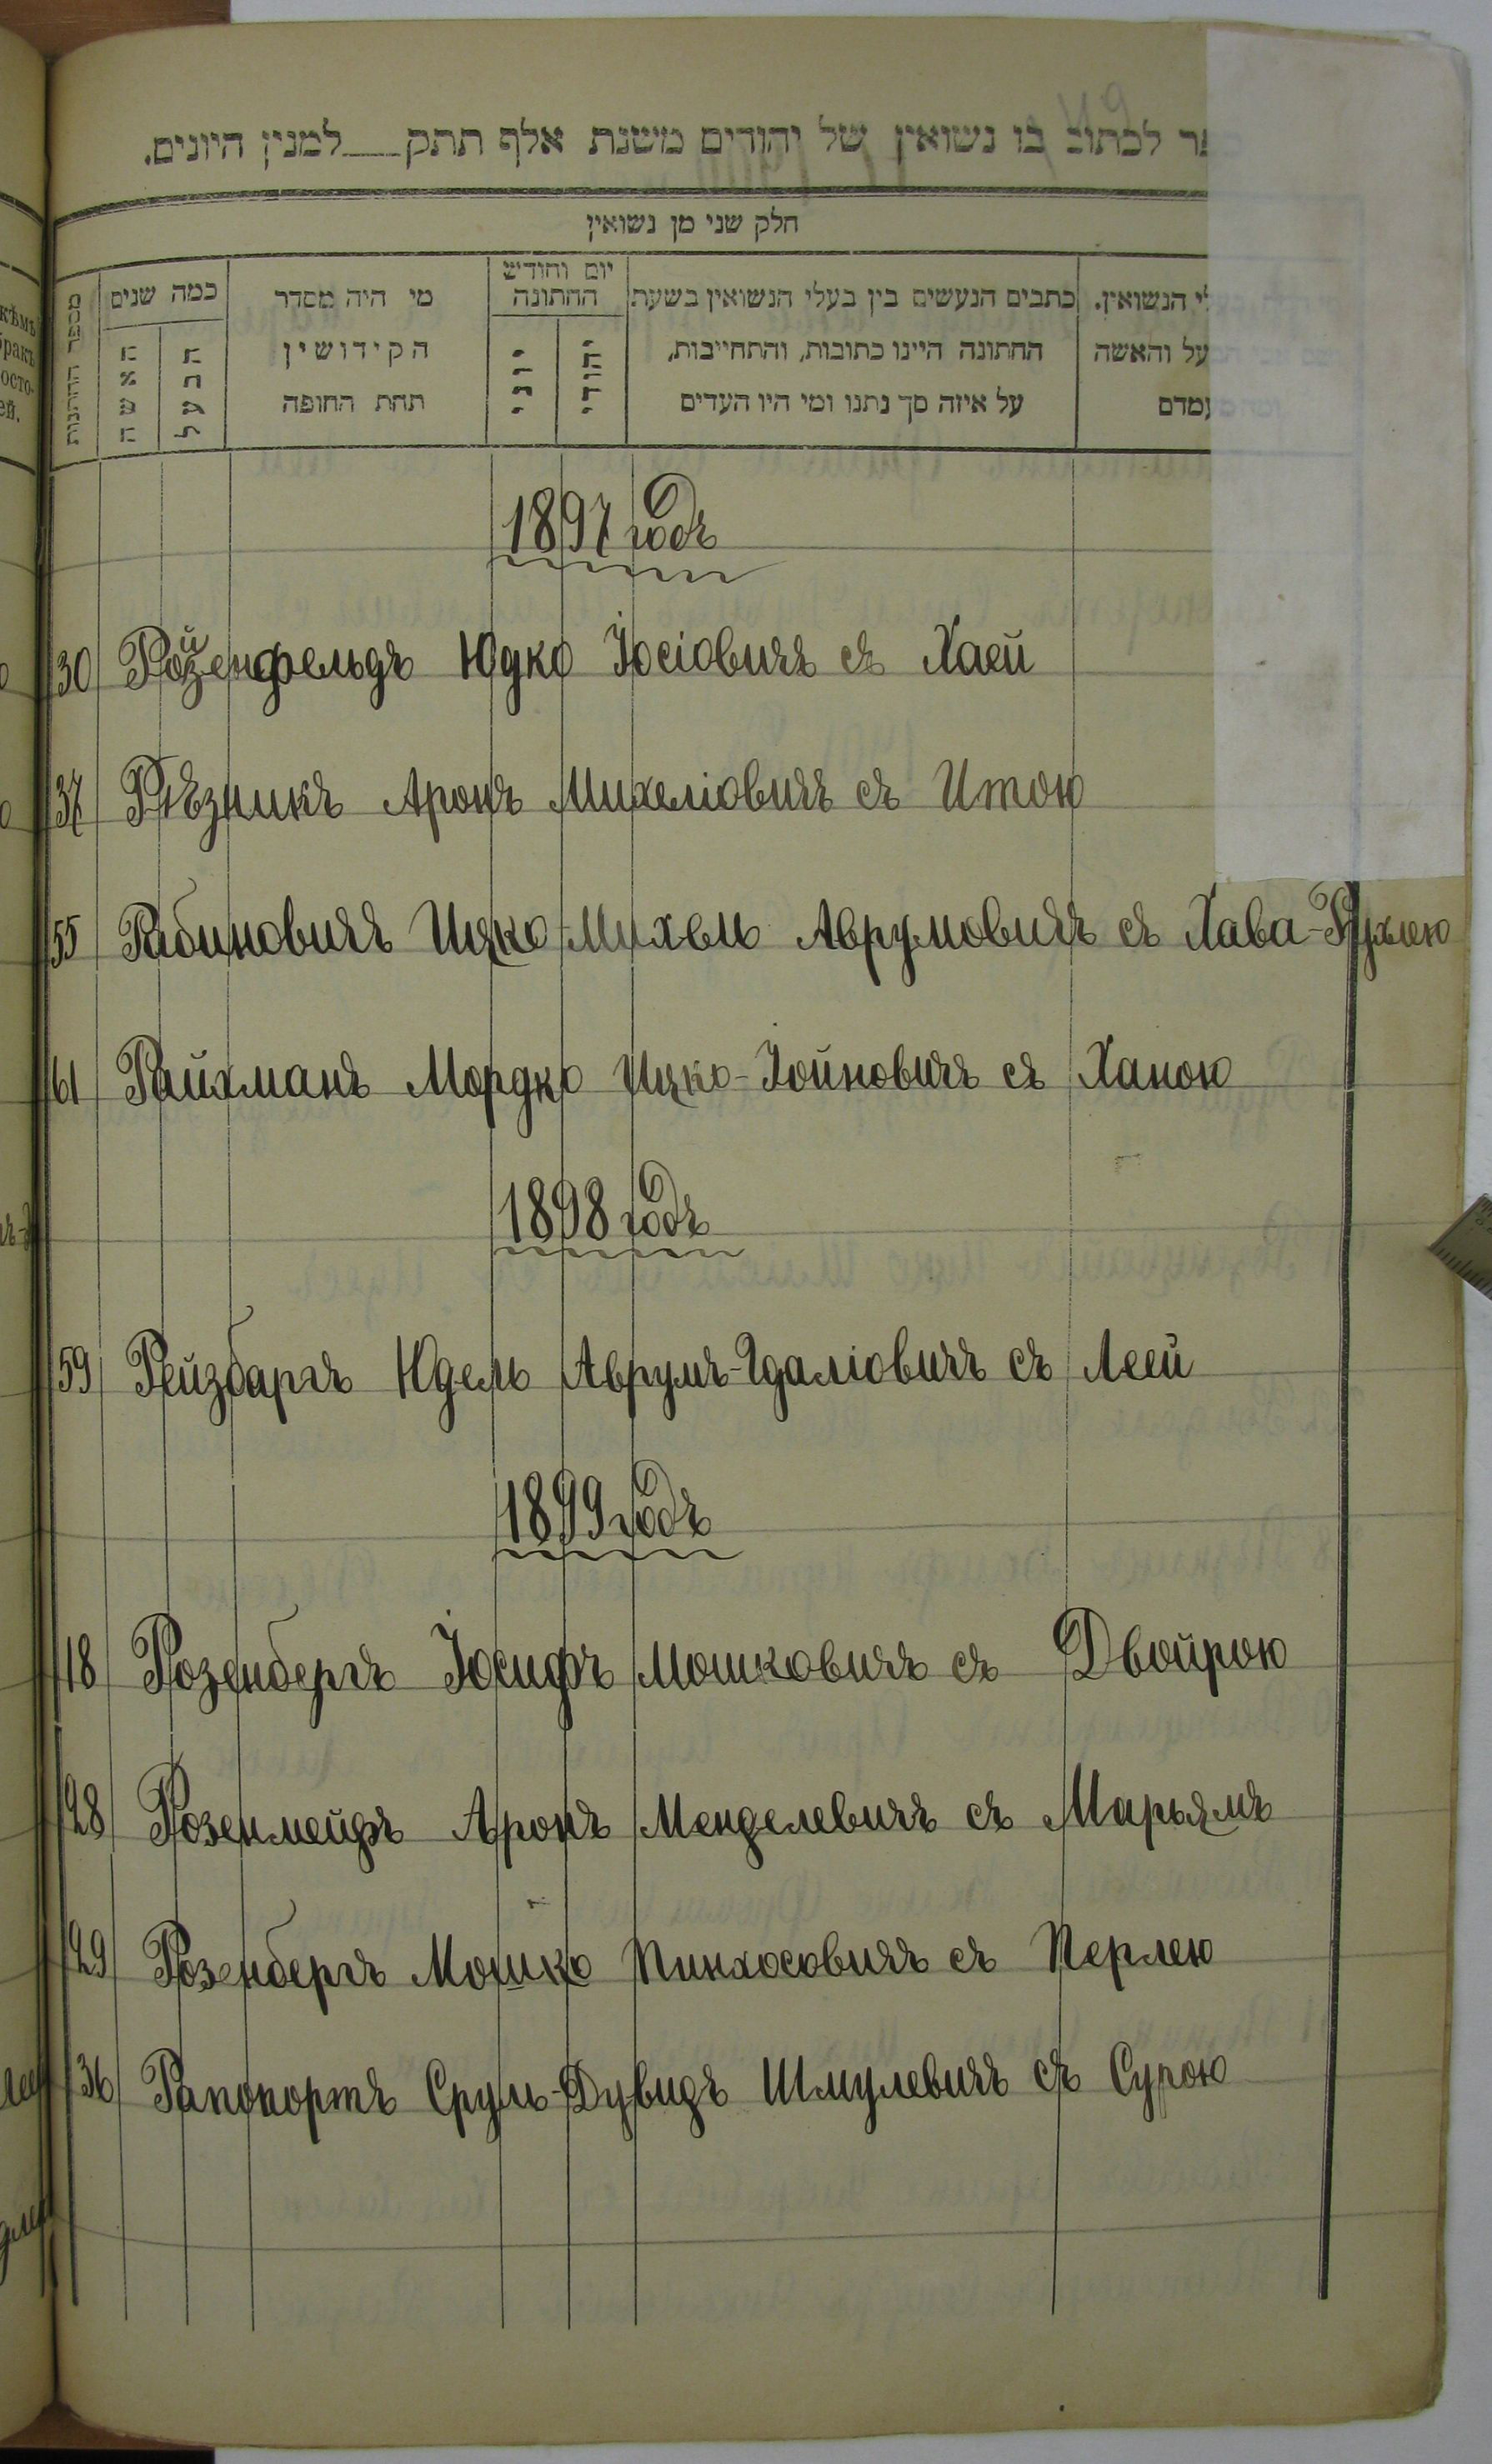 לכתוב בו נשואין של יהודים משנת אלף תתק___למנין היונים.
חלק שני מן נשואין
מספר החתונות
כמה שנים
האשה
הבעל
מי היה מסדר
הקידושין
תחת החופה
יום וחודש
החתונה
יוני
יהודי
כתבים הנעשים בין בעלי הנשואין בשעת
החתונה היינו כתובות, והתחייבות,
על איזה סך נתנו ומי היו העדים
הנשואין.
והאשה
1897 годъ
30 Ройзенфельдъ Юдко Іосіовичъ съ Хаей
37 Рѣзникъ Аронъ Михеліовичъ съ Итою
55 Рабиновичъ Ицко-Михель Аврумовичъ съ Хава-Рухлею
61 Райхманъ Мордко Ицко-Іойновичъ съ Ханою
1898 годъ
59 Рейзбаргъ Юдель Аврумъ-Гдаліовичъ съ Леей
1899 годъ
18 Розенбергъ Іосифъ Мошковичъ съ Двойрою
28 Розенмейфъ Аронъ Менделевичъ съ Марьямъ
29 Розенбергъ Мошко Пинхосовичъ съ Перлею
36 Рапопортъ Сруль-Дувидъ Шмулевичъ съ Сурою